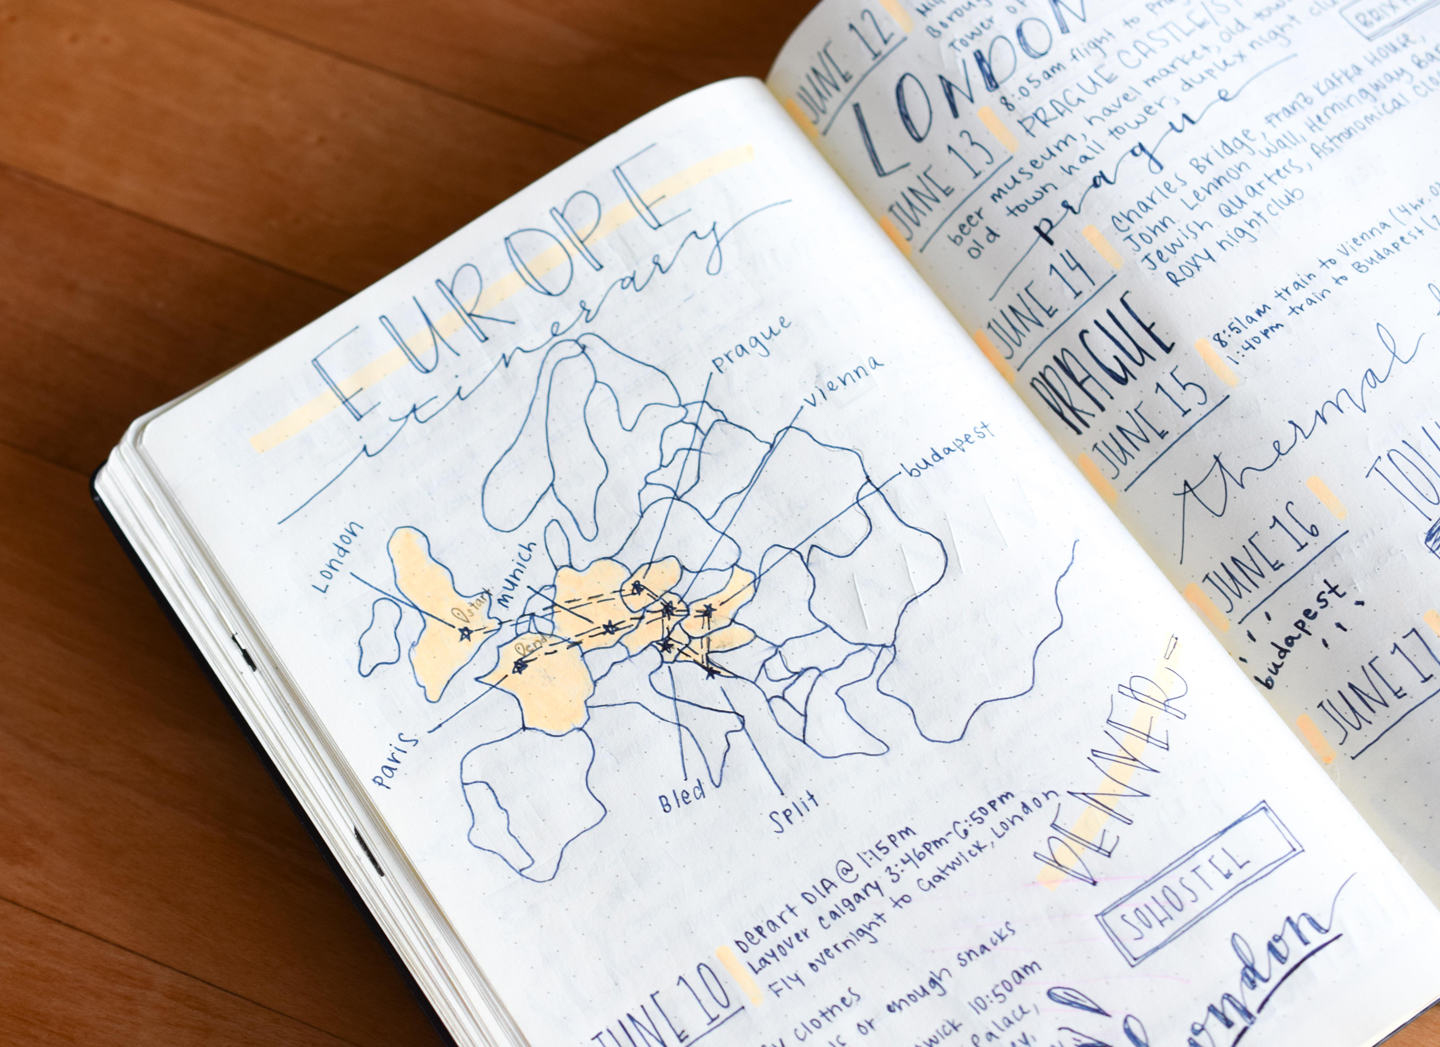 EUROPE
itinerary
prague
vienna
budapest
London
munich
start
end
Paris
Bled
Split
DENVER-
JUNE 10
Depart DIA @ 1:15pm
Layover Calgary 3:46pm-6:50pm
Fly overnight to Gatwick, London
SOHOSTEL
clothes
or enough snacks
10:50am
Palace,
London
JUNE 12
Tower of
LONDON
JUNE 13
8:05am flight to
PRAGUE CASTLE/
beer museum, havel market, old
old town hall tower, duplex night
prague
JUNE 14
Charles Bridge, Franz Kafka House,
John Lennon Wall, Hemingway Bar
Jewish Quarters, Astronomical
Roxy nightclub
PRAGUE
JUNE 15
8:51am train to Vienna (4hr
1:40pm train to Budapest (2
thermal
JUNE 16
budapest
JUNE 17